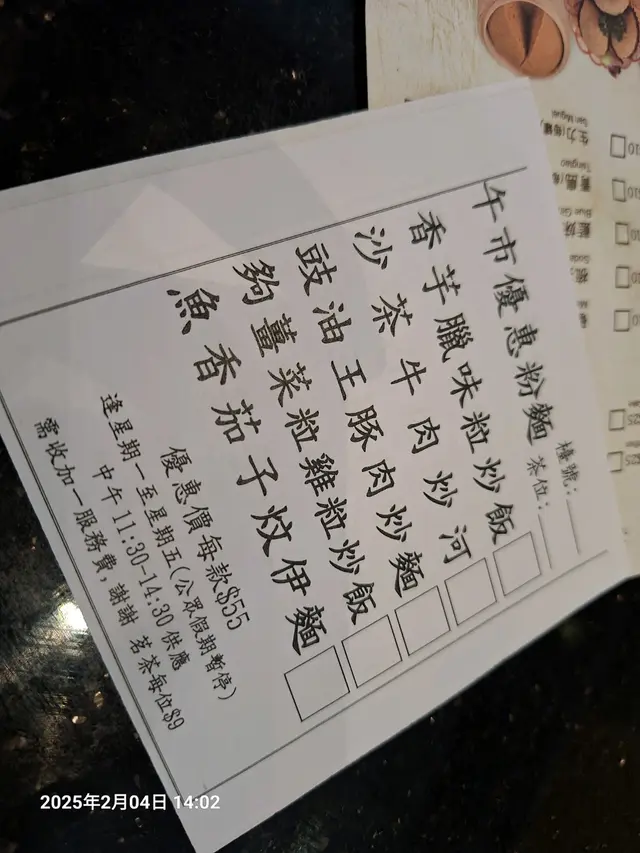 午市優惠粉麵
檯號：
茶位：
香芋臘味粒炒飯
沙茶牛肉炒河
豉油王豚肉炒麵
夠薑菜粒雞粒炒飯
魚香茄子炆伊麵
優惠價每款$55
逢星期一至星期五(公眾假期暫停)
中午 11:30-14:30 供應
需收加一服務費，謝謝 茗茶每位$9
生力
San Miguel
Tsingtao
藍妹
2025年2月04日 14:02